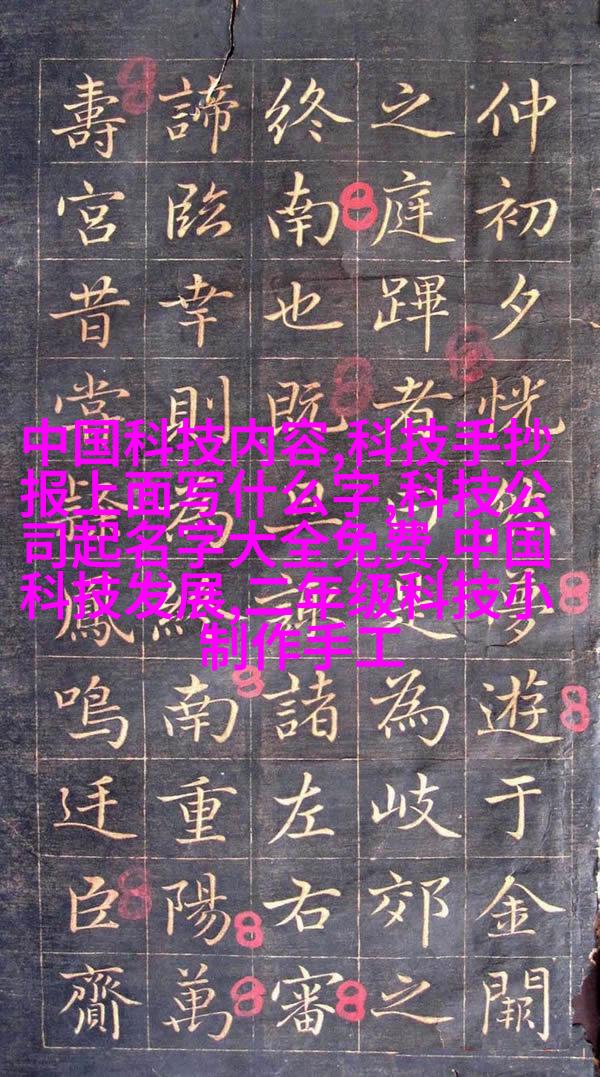 仲初夕恍夢遊于金闕
之庭蹕者是為岐郊之
終南也既諸左右審
諦臨幸則為終南重陽萬
壽宮昔鳳鳴廷臣齎
中国科技内容,科技手抄
报上面写什么字,科技公
司起名字大全免费,中国
科技发展,二年级科技小
制作手工